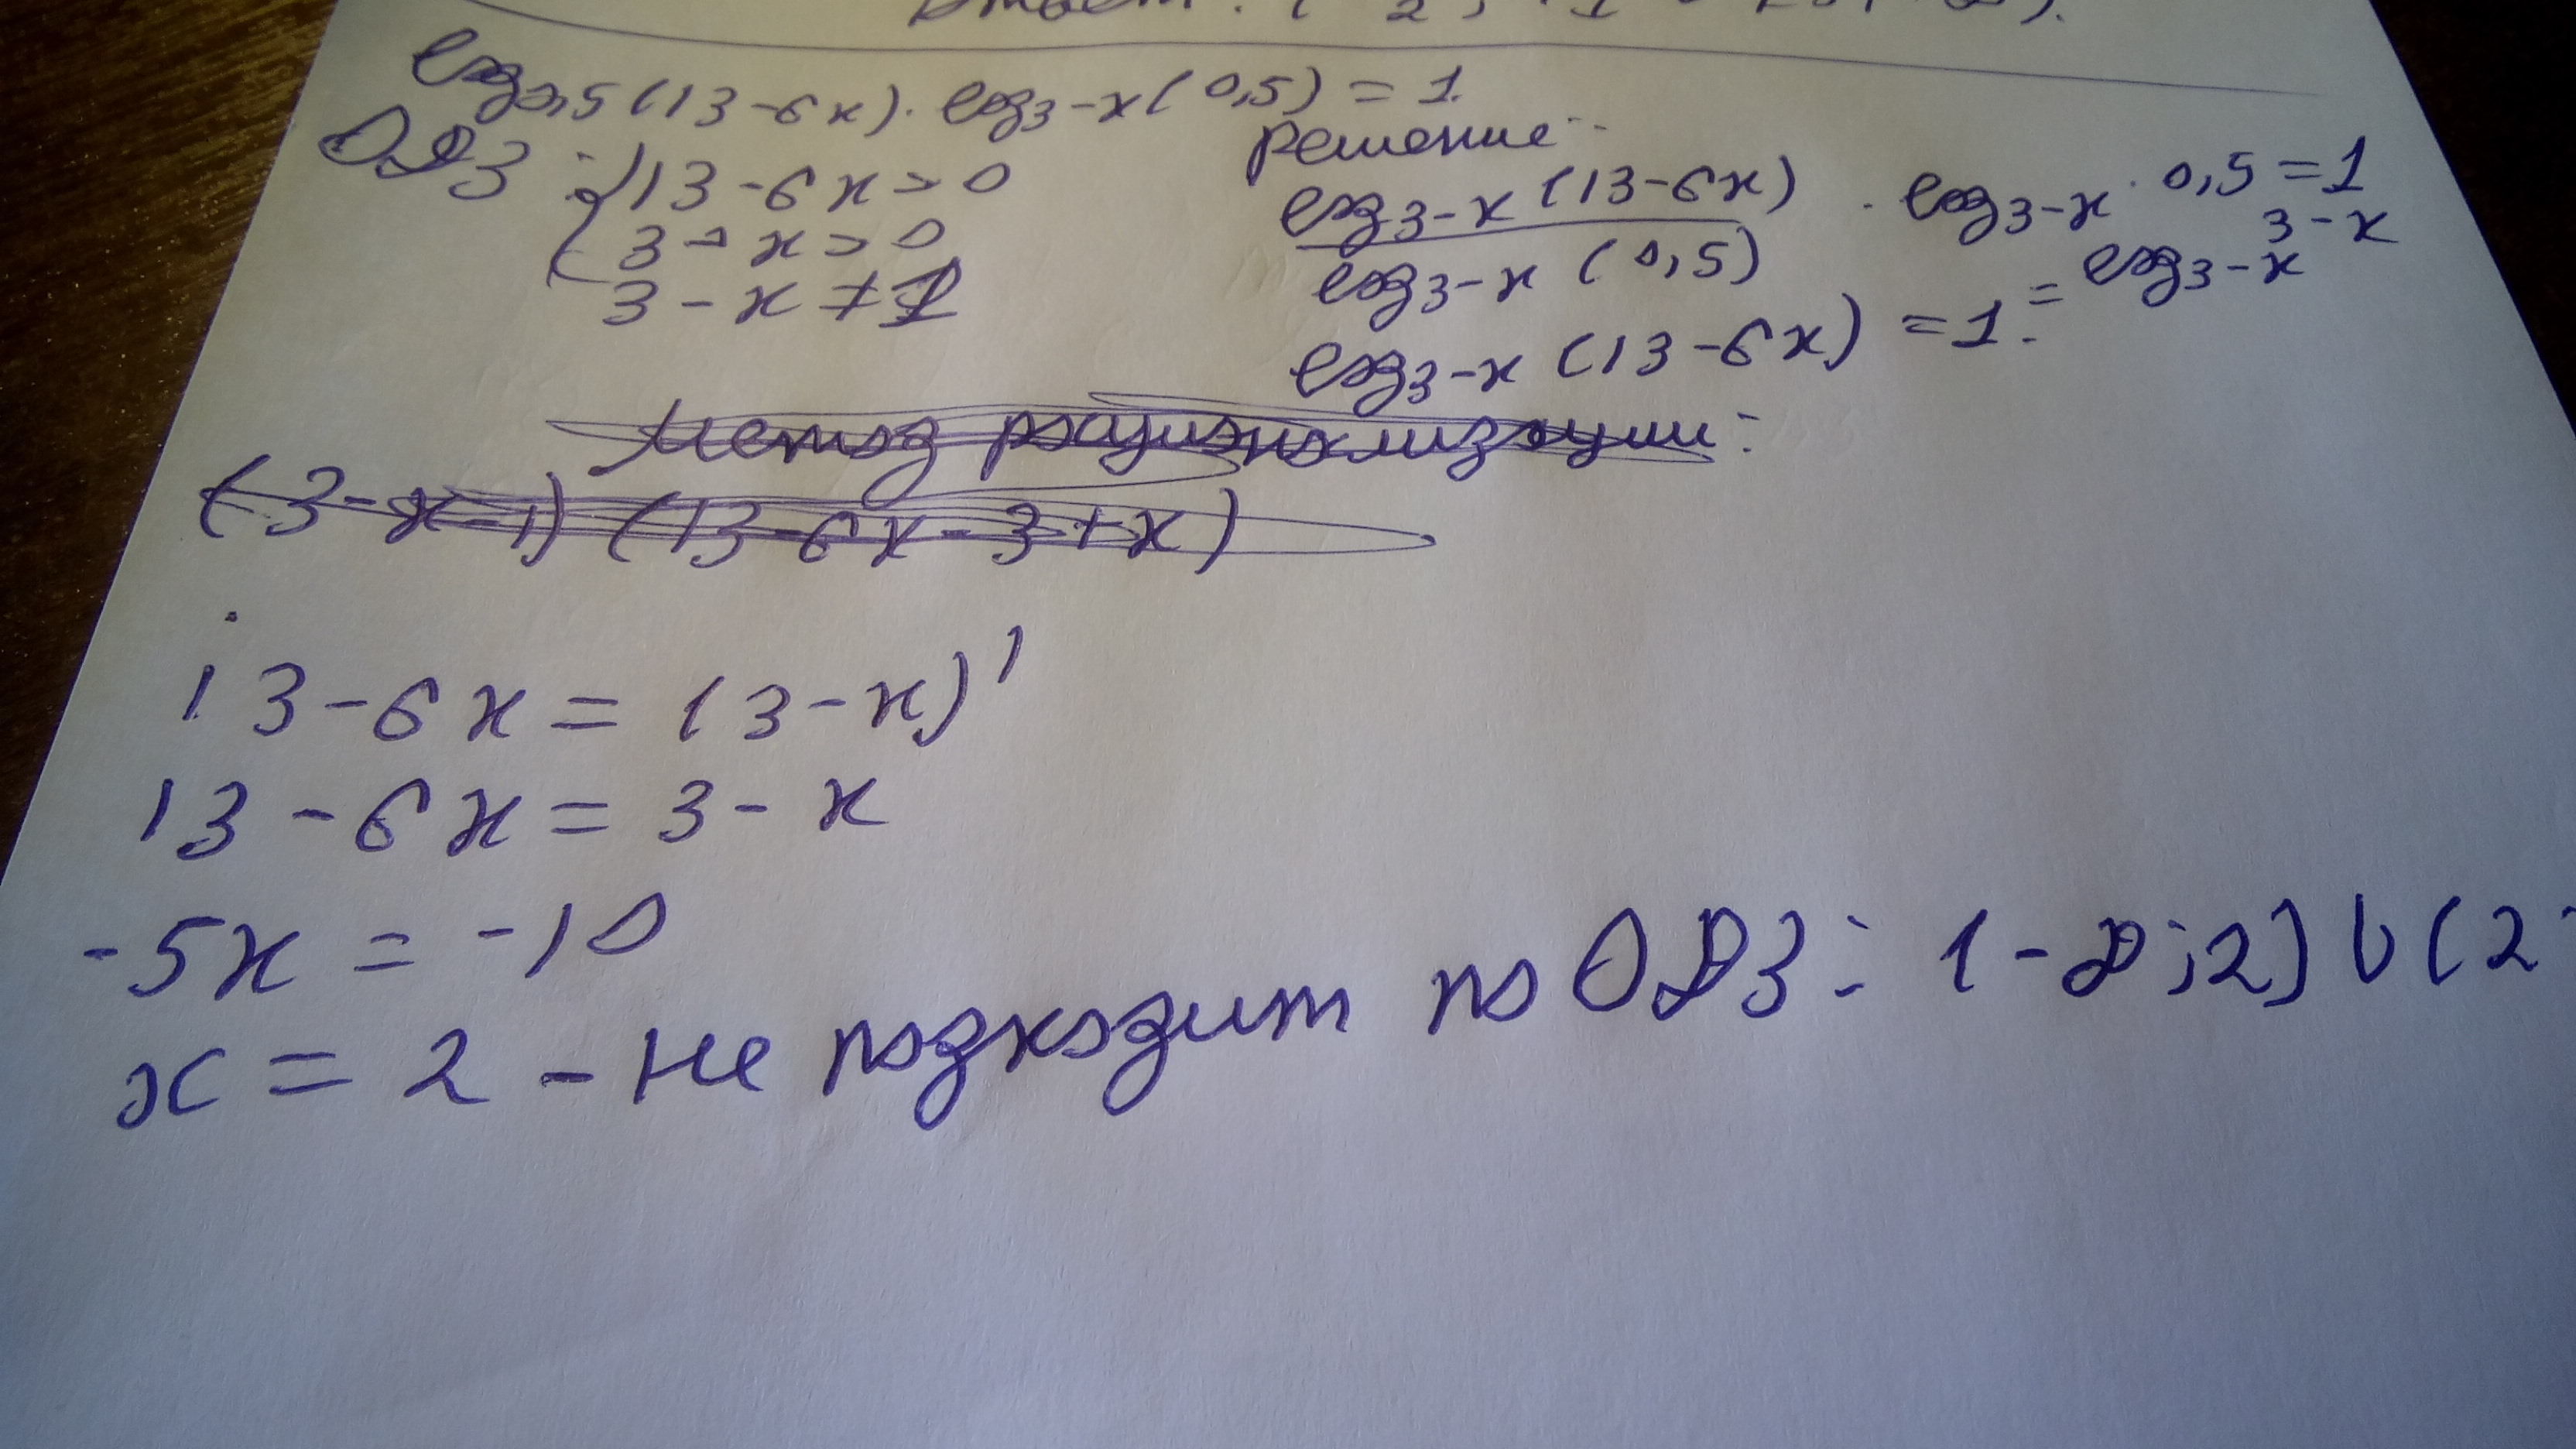 log₀,₅(13-6x)·log₃₋ₓ(0,5)=1.
ОДЗ: {13-6x>0
3-x>0
3-x≠1
решение:
log₃₋ₓ(13-6x)/log₃₋ₓ(0,5) · log₃₋ₓ 0,5=1
log₃₋ₓ(13-6x)=1.=log₃₋ₓ 3-x
Метод рационализации:
(3-x-1)(13-6x-3+x)
13-6x=(3-x)¹
13-6x=3-x
-5x=-10
x=2 - не подходит по ОДЗ: (-∞;2)∪(2;